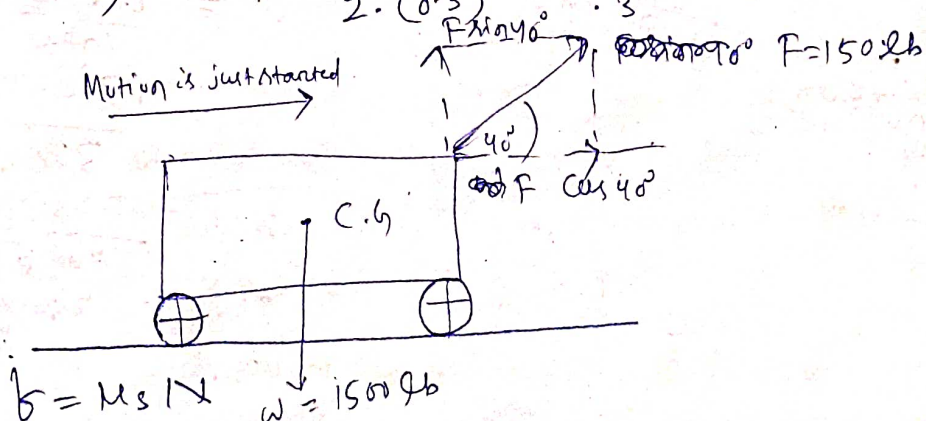 2. (0.5) . 3
F sin 40°
F=150 lb
Motion is just started
40°
F Cos 40°
C.G
f = μs N
W = 1500 lb